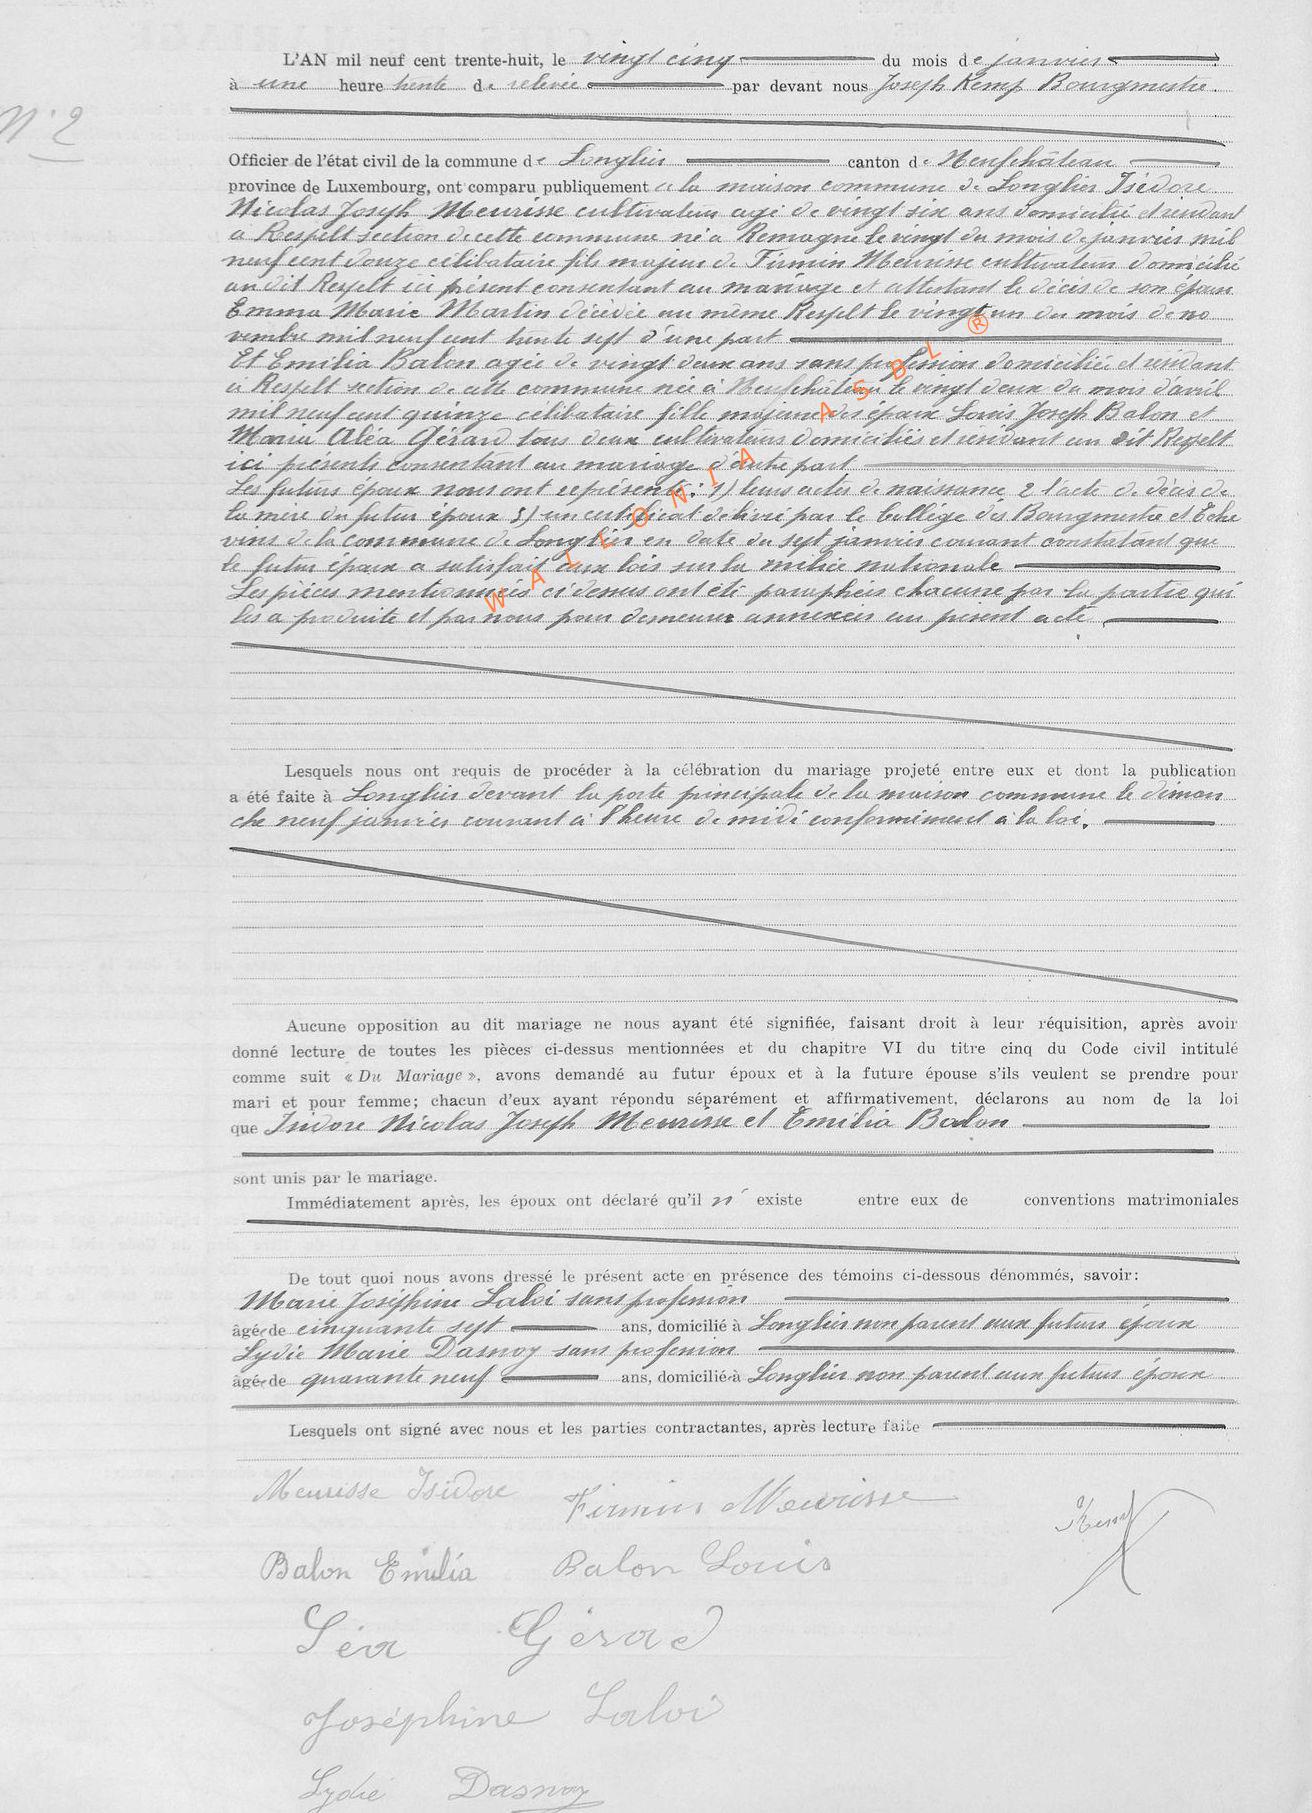 L'AN mil neuf cent trente-huit, le vingt cinq du mois de janvier
à une heure trente de relevée par devant nous Joseph Kemp Bourgmestre.
N° 2
Officier de l'état civil de la commune de Longlier canton de Neufchâteau
province de Luxembourg, ont comparu publiquement à la maison commune de Longlier Isidore
Nicolas Joseph Meurisse cultivateur agé de vingt six ans domicilié et résidant
a Respelt section de cette commune né a Remagne le vingt du mois de janvier mil
neuf cent douze célibataire fils majeur de Firmin Meurisse cultivateur domicilié
au dit Respelt ici présent consentant au mariage et attestant le décès de son épouse
Emma Marie Martin décédée au même Respelt le vingt un du mois de no
vembre mil neuf cent trente sept d'une part
Et Emilia Balon agée de vingt deux ans sans profession domiciliée et résidant
à Respelt section de cette commune née à Neufchâteau le vingt deux du mois d'avril
mil neuf cent quinze célibataire fille majeure des époux Louis Joseph Balon et
Maria Aléa Gérard tous deux cultivateurs domiciliés et résidant au dit Respelt
ici présents consentant au mariage d'autre part
Les futurs époux nous ont représenté : 1) leurs actes de naissance 2 l'acte de décès de
la mère du futur époux 3) un certificat délivré par le Collège des Bourgmestre et Eche
vins de la commune de Longlier en date du sept janvier courant constatant que
le futur époux a satisfait aux lois sur la milice nationale
Les pièces mentionnées ci dessus ont été paraphées chacune par la partie qui
les a produite et par nous pour demeurer annexées au présent acte
WALLONIA ASBL ®
Lesquels nous ont requis de procéder à la célébration du mariage projeté entre eux et dont la publication
a été faite à Longlier devant la porte principale de la maison commune le diman
che neuf janvier courant à l'heure de midi conformément à la loi.
Aucune opposition au dit mariage ne nous ayant été signifiée, faisant droit à leur réquisition, après avoir
donné lecture de toutes les pièces ci-dessus mentionnées et du chapitre VI du titre cinq du Code civil intitulé
comme suit « Du Mariage », avons demandé au futur époux et à la future épouse s'ils veulent se prendre pour
mari et pour femme; chacun d'eux ayant répondu séparément et affirmativement, déclarons au nom de la loi
que Isidore Nicolas Joseph Meurisse et Emilia Balon
sont unis par le mariage.
Immédiatement après, les époux ont déclaré qu'il n' existe entre eux de conventions matrimoniales
De tout quoi nous avons dressé le présent acte en présence des témoins ci-dessous dénommés, savoir:
Marie Joséphine Laloi sans profession
âgée de cinquante sept ans, domicilié à Longlier non parent aux futurs époux
Lydie Marie Dasnoy sans profession
âgée de quarante neuf ans, domicilié à Longlier non parent aux futurs époux
Lesquels ont signé avec nous et les parties contractantes, après lecture faite
Meurisse Isidore Firmin Meurisse
Kemp
Balon Emilia Balon Louis
Léa Gérard
Joséphine Laloi
Lydie Dasnoy